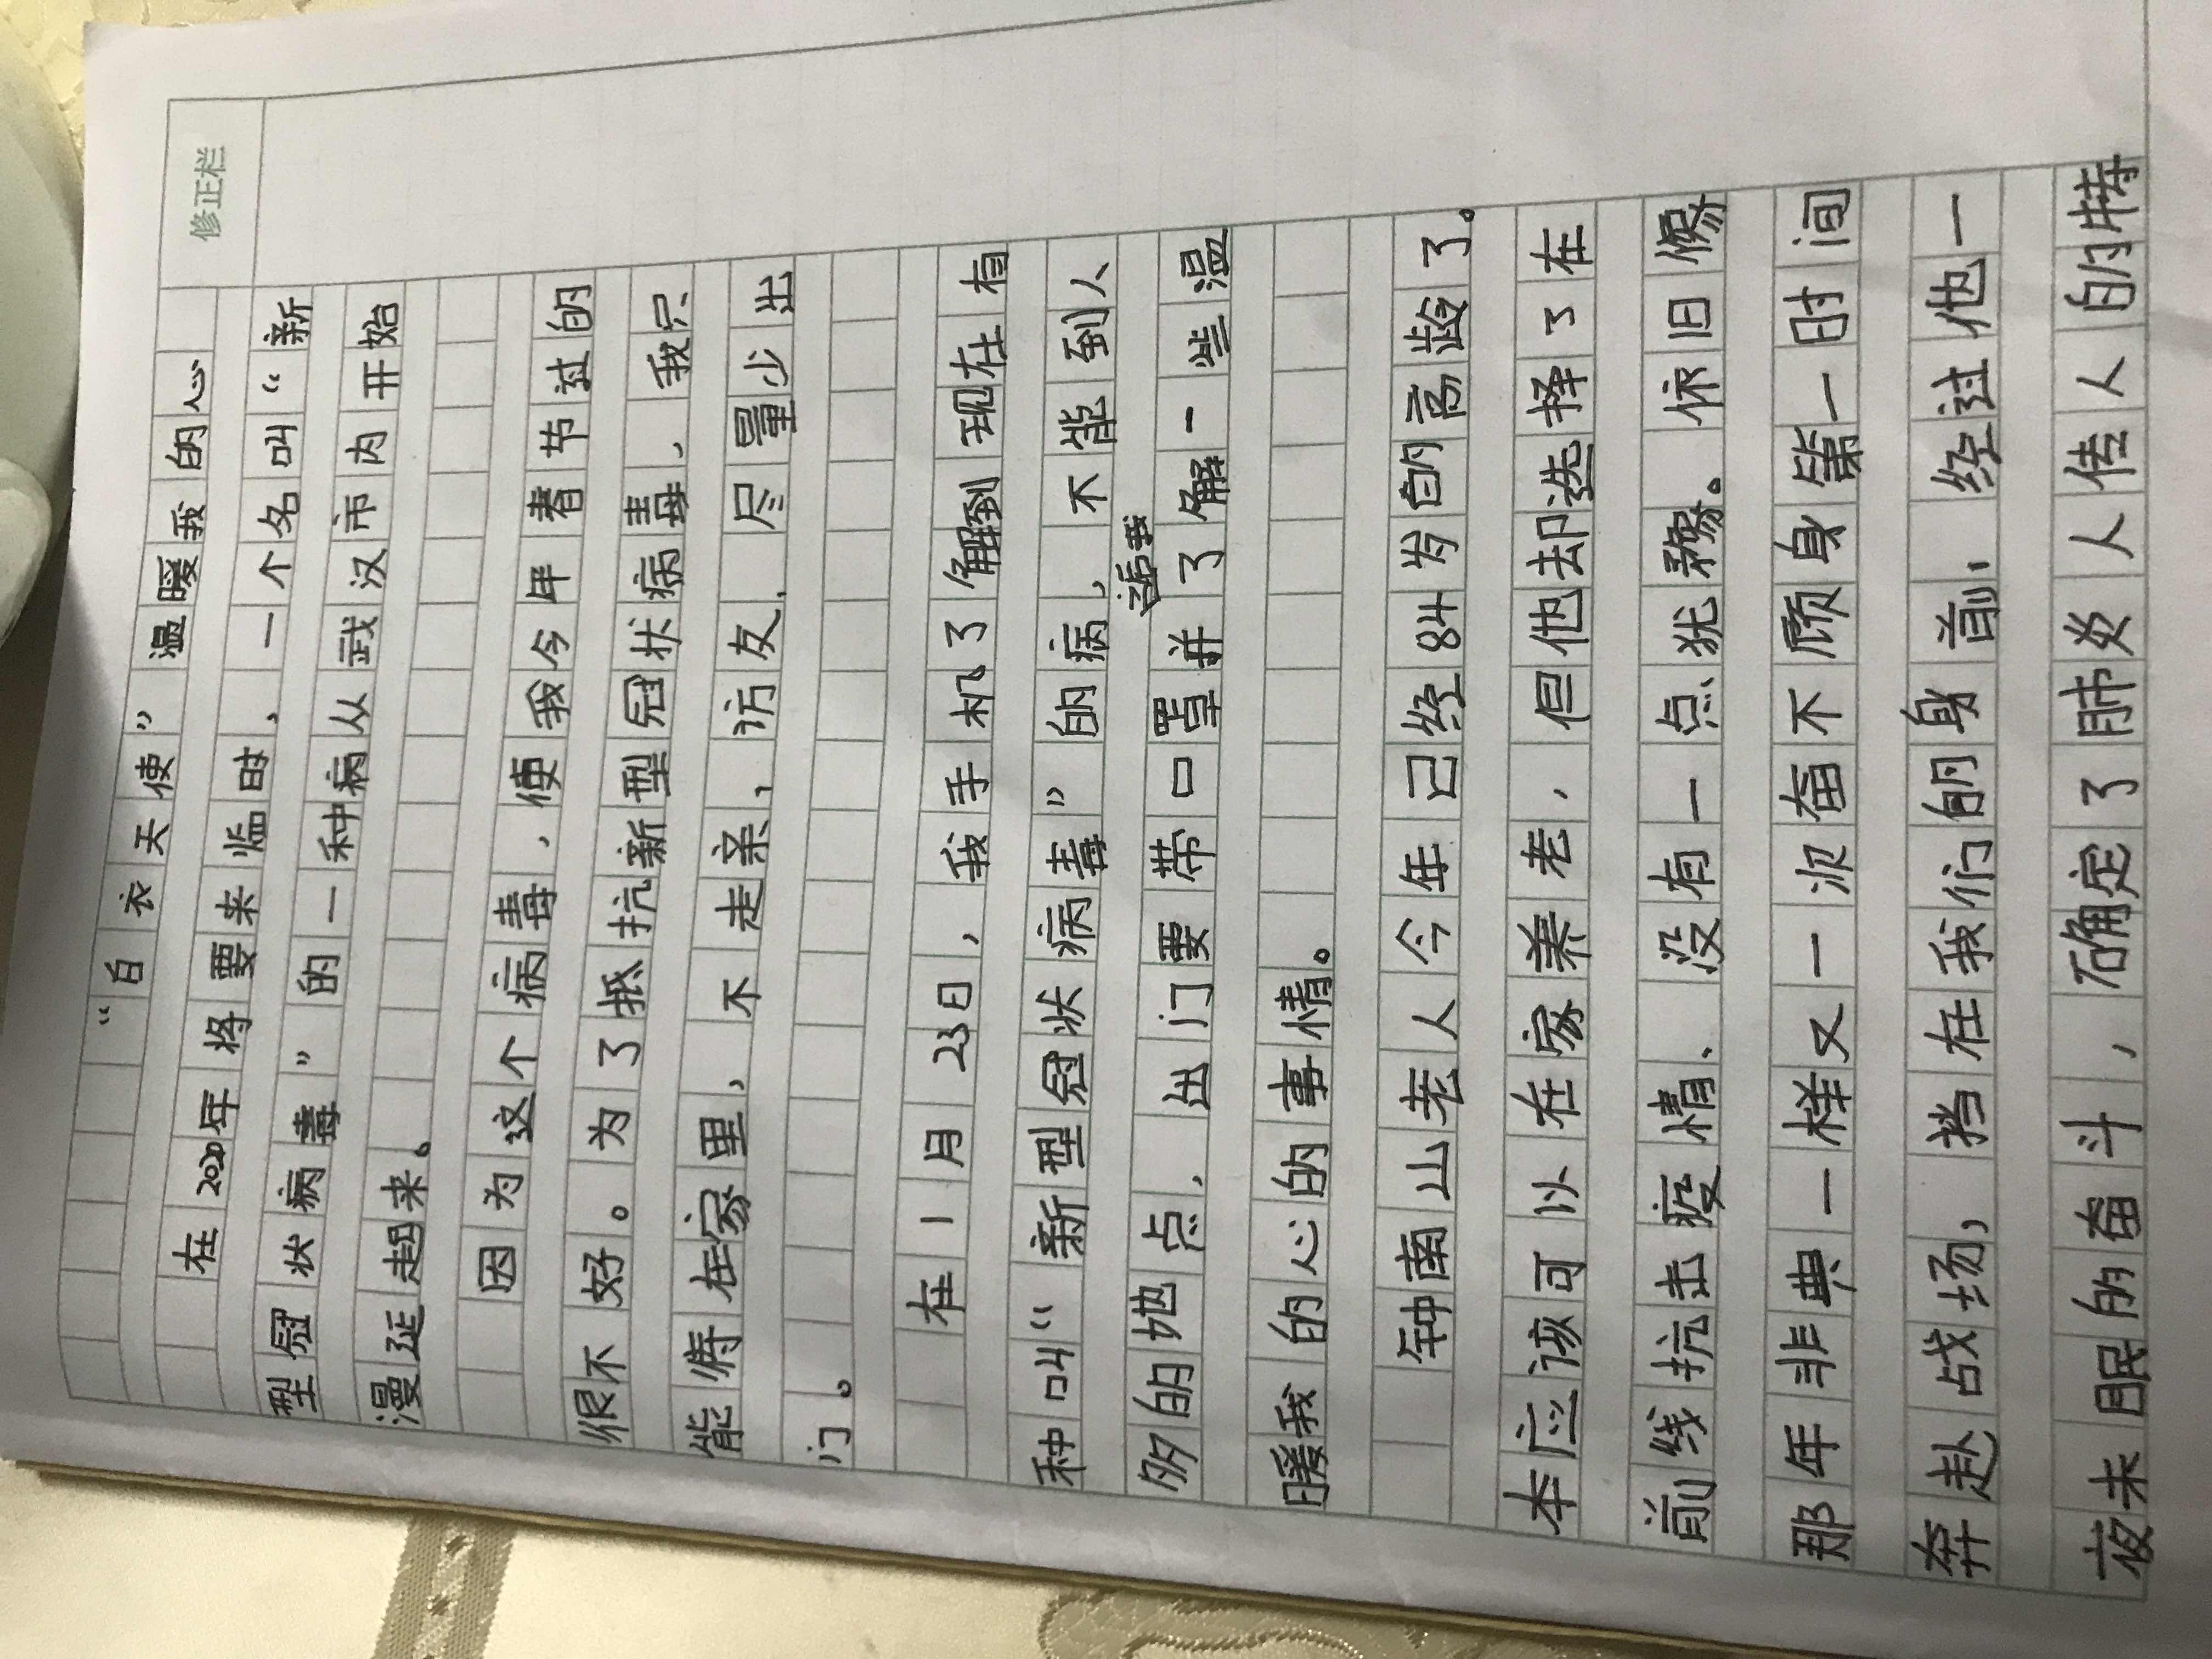 修正栏
“白衣天使”温暖我的心
在2020年将要来临时，一个名叫“新
型冠状病毒”的一种病从武汉市内开始
漫延起来。
因为这个病毒，使我今年春节过的
很不好。为了抵抗新型冠状病毒，我只
能待在家里，不走亲，访友，尽量少出
门。
在1月23日，我手机了解到现在有
种叫“新型冠状病毒”的病，不能到人
多的地点，出门要带口罩并了解一些温
暖我的心的事情。
钟南山老人今年已经84岁的高龄了。
本应该可以在家养老，但他却选择了在
前线抗击疫情、没有一点犹豫。依旧像
那年非典一样又一次奋不顾身第一时间
奔赴战场，挡在我们的身前，经过他一
夜未眠的奋斗，确定了肺炎人传人的特